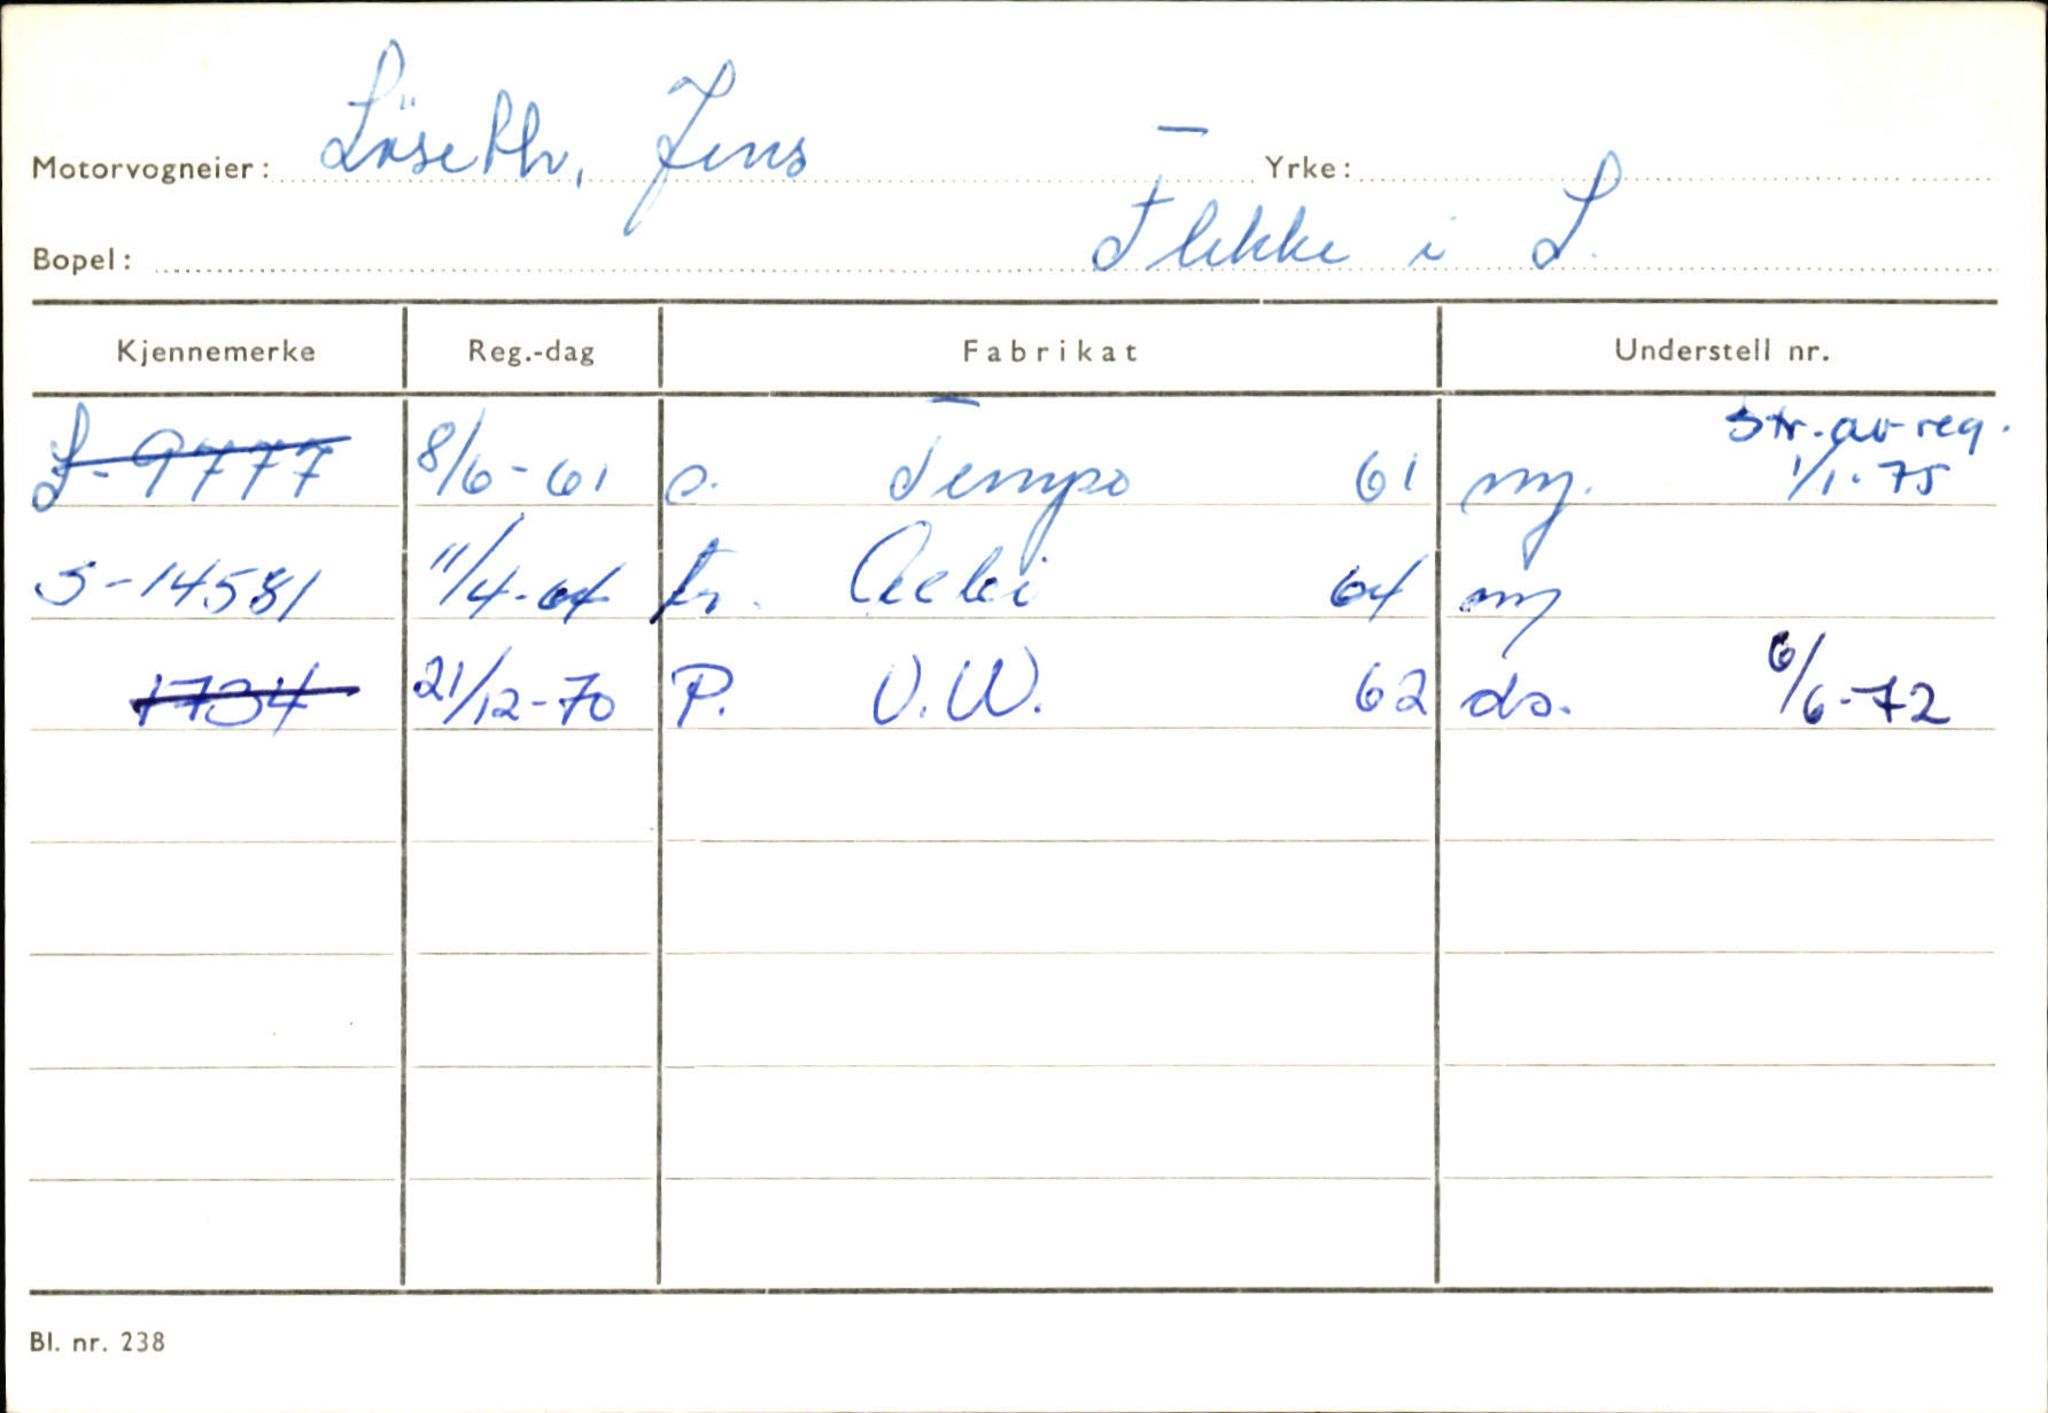 Motorvogneier: Löseth, Jens Yrke:
Bopel: Flekke i L.
Kjennemerke Reg.-dag Fabrikat Understell nr.
S-9777 8/6-61 c. Tempo 61 ny. Str. av reg. 1/1-75
S-14581 11/4-64 tr. Aebi 64 ny
1734 21/12-70 P. V.W. 62 do. 6/6-72
Bl. nr. 238